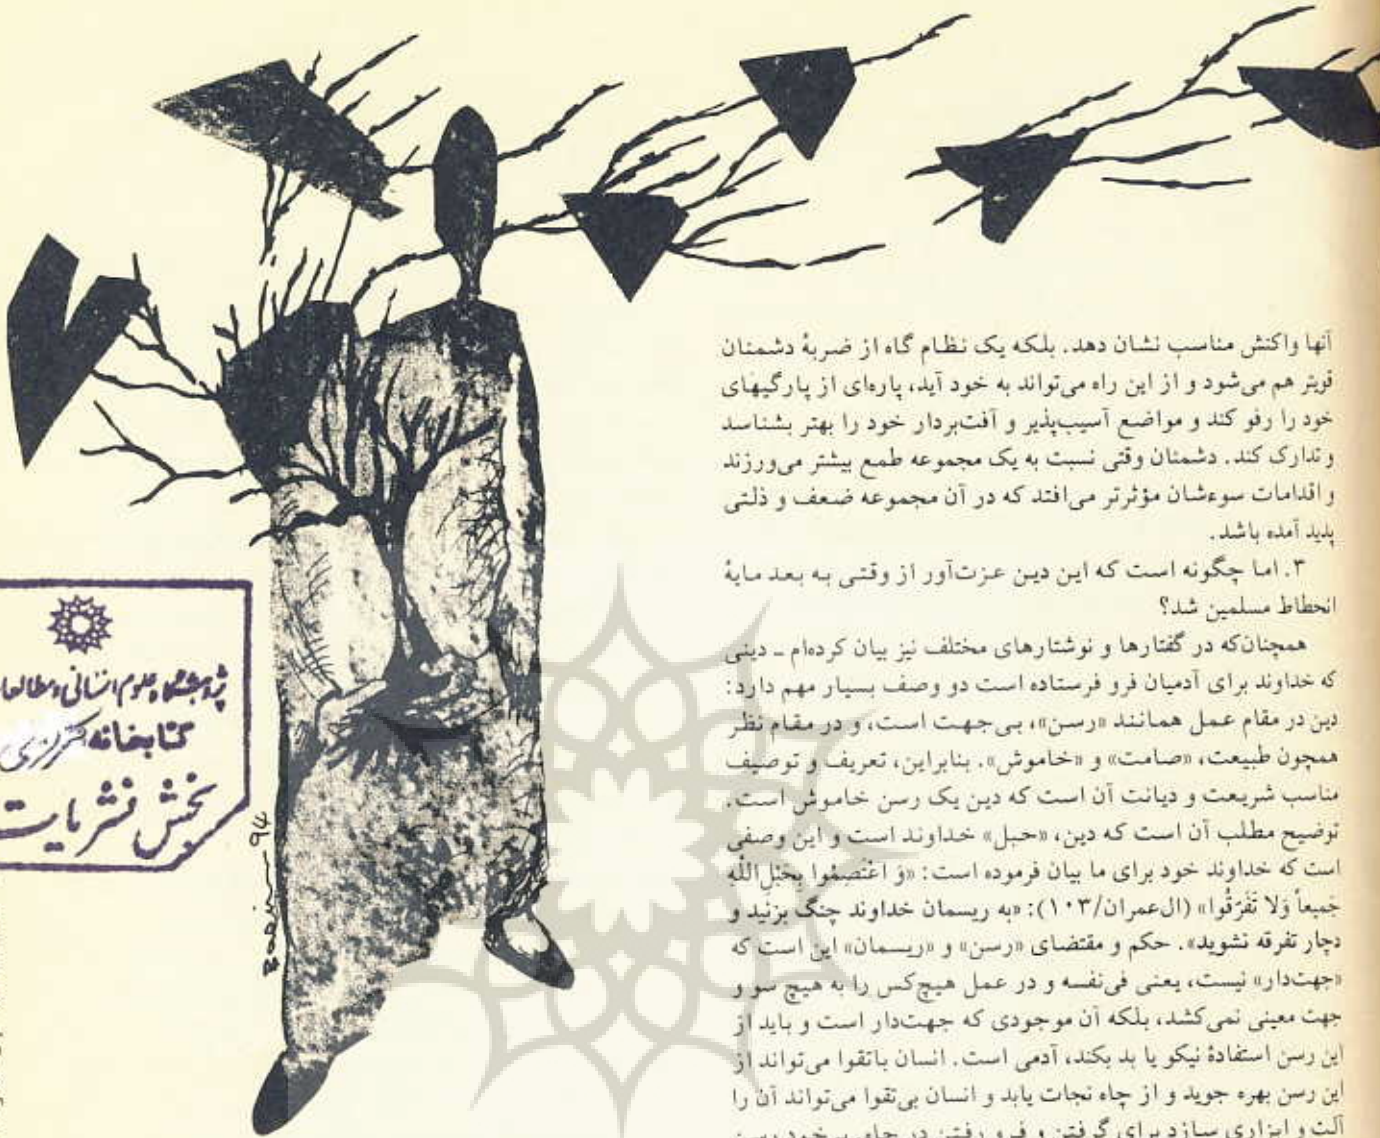 آنها واکنش مناسب نشان دهد. بلکه یک نظام گاه از ضربهٔ دشمنان
قویتر هم می‌شود و از این راه می‌تواند به خود آید، پاره‌ای از پارگیهای
خود را رفو کند و مواضع آسیب‌پذیر و آفت‌بردار خود را بهتر بشناسد
و تدارک کند. دشمنان وقتی نسبت به یک مجموعه طمع بیشتر می‌ورزند
و اقدامات سوءشان مؤثرتر می‌افتد که در آن مجموعه ضعف و ذلتی
پدید آمده باشد.
۳. اما چگونه است که این دین عزت‌آور از وقتی به بعد مایهٔ
انحطاط مسلمین شد؟
همچنان‌که در گفتارها و نوشتارهای مختلف نیز بیان کرده‌ام ـ دینی
که خداوند برای آدمیان فرو فرستاده است دو وصف بسیار مهم دارد:
دین در مقام عمل همانند «رسن»، بی‌جهت است، و در مقام نظر
همچون طبیعت، «صامت» و «خاموش». بنابراین، تعریف و توصیف
مناسب شریعت و دیانت آن است که دین یک رسن خاموش است.
توضیح مطلب آن است که دین، «حبل» خداوند است و این وصفی
است که خداوند خود برای ما بیان فرموده است: «وَ اعْتَصِمُوا بِحَبْلِ اللّهِ
جَمیعاً وَلا تَفَرَّقُوا» (ال‌عمران/۱۰۳): «به ریسمان خداوند چنگ بزنید و
دچار تفرقه نشوید». حکم و مقتضای «رسن» و «ریسمان» این است که
«جهت‌دار» نیست، یعنی فی‌نفسه و در عمل هیچ‌کس را به هیچ سو و
جهت معینی نمی‌کشد، بلکه آن موجودی که جهت‌دار است و باید از
این رسن استفادهٔ نیکو یا بد بکند، آدمی است. انسان باتقوا می‌تواند از
این رسن بهره جوید و از چاه نجات یابد و انسان بی‌تقوا می‌تواند آن را
آلت و ابزاری سازد برای گرفتن و فرو رفتن در چاه. بر خود رسن
پژوهشگاه علوم انسانی و مطالعا
کتابخانه مرکزی
بخش نشریات
94